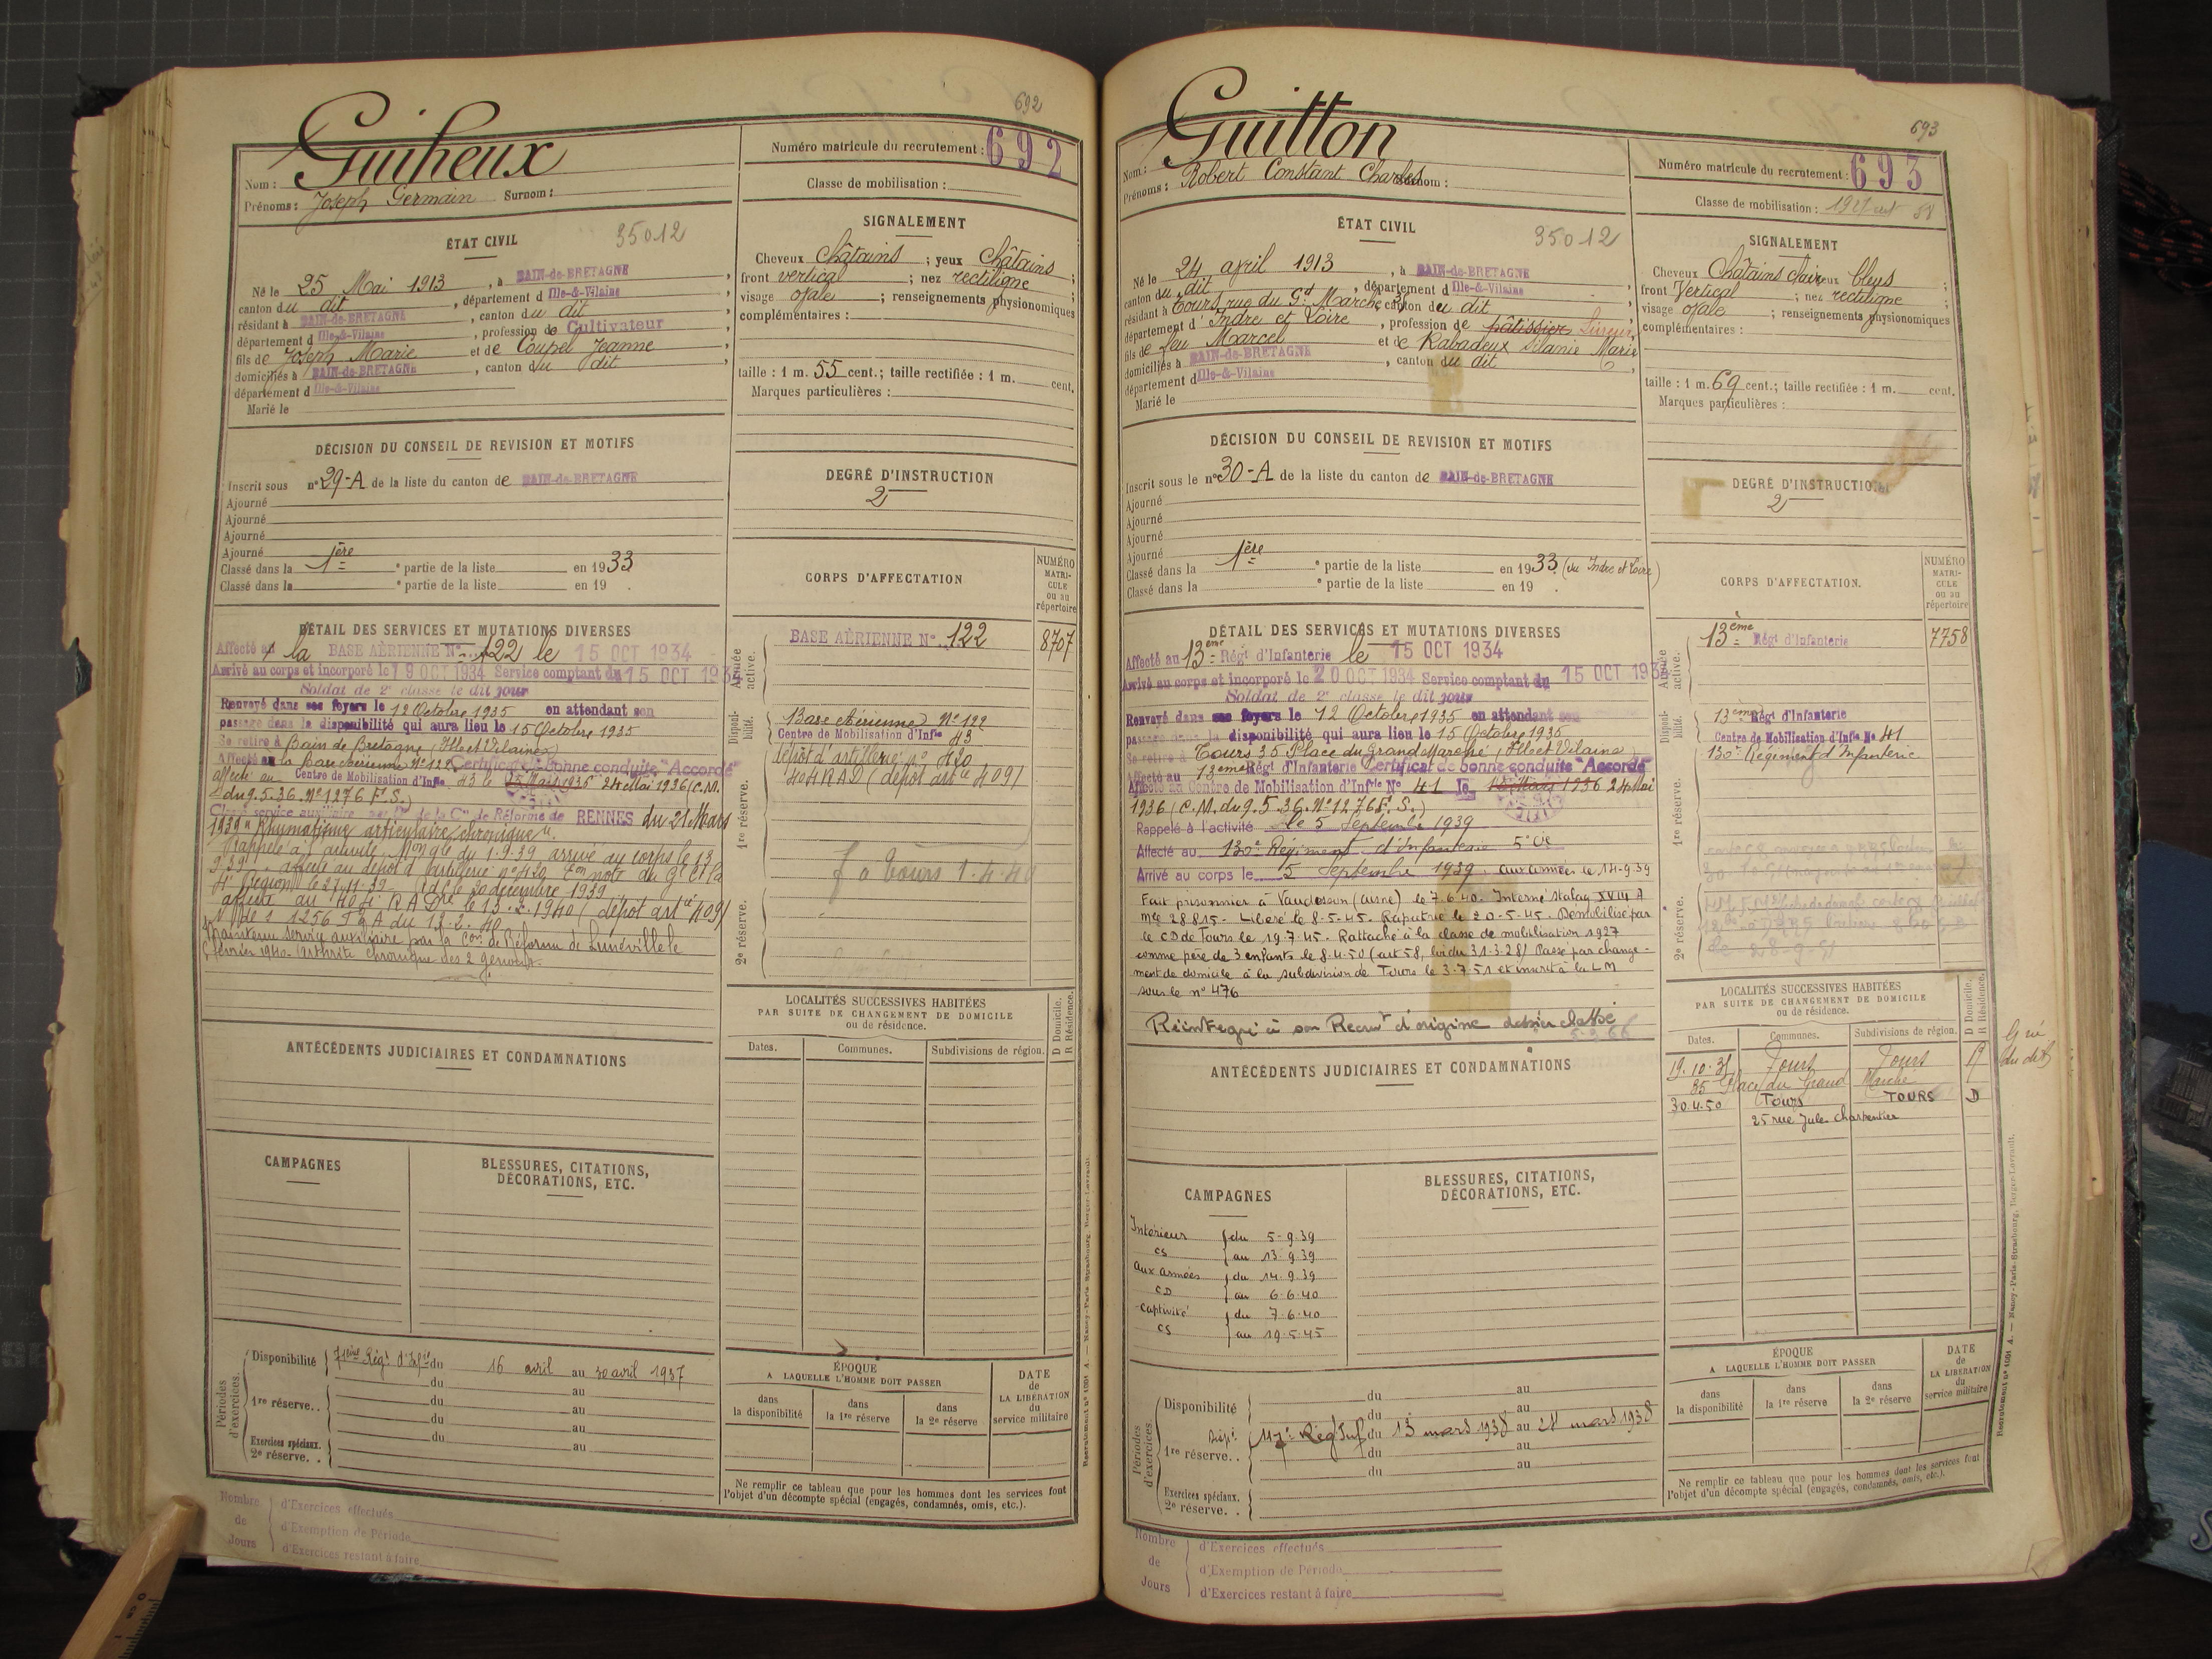 692
Guiheux
Nom :
Prénoms : Joseph Germain Surnom :
Numéro matricule du recrutement : 692
Classe de mobilisation :
ÉTAT CIVIL 35012
Né le 25 Mai 1913, à BAIN-de-BRETAGNE,
canton du dit, département d Ille-&-Vilaine
résidant à BAIN-de-BRETAGNE, canton du dit
département d Ille-&-Vilaine, profession de Cultivateur
fils de Joseph Marie et de Coupel Jeanne
domiciliés à BAIN-de-BRETAGNE, canton du dit
département d Ille-&-Vilaine
Marié le
SIGNALEMENT
Cheveux châtains ; yeux châtains ;
front vertical ; nez rectiligne ;
visage ovale ; renseignements physionomiques
complémentaires :
taille : 1 m. 55 cent.; taille rectifiée : 1 m. cent.
Marques particulières :
DÉCISION DU CONSEIL DE REVISION ET MOTIFS
Inscrit sous n° 29-A de la liste du canton de BAIN-de-BRETAGNE
Ajourné
Ajourné
Ajourné
Ajourné
Classé dans la 1ère partie de la liste en 1933
Classé dans la partie de la liste en 19
DEGRÉ D'INSTRUCTION
2
CORPS D'AFFECTATION
NUMÉRO MATRICULE ou au répertoire
DÉTAIL DES SERVICES ET MUTATIONS DIVERSES
Affecté à la BASE AÉRIENNE N° 122 le 15 OCT 1934
Arrivé au corps et incorporé le 19 OCT 1934 Service comptant du 15 OCT 1934
Soldat de 2e classe le dit jour
Renvoyé dans ses foyers le 12 Octobre 1935 en attendant son
passage dans la disponibilité qui aura lieu le 15 Octobre 1935
Se retire à Bain de Bretagne (Ille et Vilaine)
Affecté à la Base Aérienne N° 122 Certificat de bonne conduite "Accordé"
affecté au Centre de Mobilisation d'Infie 43 le 25 Mars 1936 24 Mai 1936 (C.M.
du 9.5.36. N° 1276 F.S.)
Classé service auxiliaire de la Con de Réforme de RENNES du 21 Mars
1939 "Rhumatisme articulaire chronique".
Rappelé à l'activité Mon gle du 1.9.39 arrivé au corps le 13
9.39 affecté au dépôt d'artillerie n° 420 note du Gl Ct la
4e Région le 27.11.39 20 décembre 1939
affecté au 404e R A D le 13.2.1940 (dépôt art ie 409)
N de s 1256 A du 12.2.40
Maintenu service auxiliaire par la Con de Réforme de Lunéville le
février 1940. Arthrite chronique des 2 genoux.
Armée active.
BASE AÉRIENNE N° 122 8707
Disponibilité.
Base Aérienne N° 122
Centre de Mobilisation d'Infie 43
dépôt d'artillerie n° 420
404 R A D (dépôt art ie 409)
1re réserve.
à Tours 1.4.40
2e réserve.
LOCALITÉS SUCCESSIVES HABITÉES
PAR SUITE DE CHANGEMENT DE DOMICILE
ou de résidence.
D Domicile. R Résidence.
Dates. Communes. Subdivisions de région.
ANTÉCÉDENTS JUDICIAIRES ET CONDAMNATIONS
CAMPAGNES
BLESSURES, CITATIONS,
DÉCORATIONS, ETC.
Périodes d'exercices.
Disponibilité 71ème Régt d'Infie du 16 avril au 30 avril 1937
du au
1re réserve. . du au
du au
Exercices spéciaux. du au
2e réserve. .
ÉPOQUE
A LAQUELLE L'HOMME DOIT PASSER
dans la disponibilité
dans la 1re réserve
dans la 2e réserve
DATE de LA LIBÉRATION du service militaire
Ne remplir ce tableau que pour les hommes dont les services font
l'objet d'un décompte spécial (engagés, condamnés, omis, etc.).
Nombre de Jours
d'Exercices effectués
d'Exemption de Période
d'Exercices restant à faire
693
Guitton
Nom :
Prénoms : Robert Constant Charles Surnom :
Numéro matricule du recrutement : 693
Classe de mobilisation : 1927 art 58
ÉTAT CIVIL 35012
Né le 24 avril 1913, à BAIN-de-BRETAGNE
canton du dit, département d Ille-&-Vilaine
résidant à Tours rue du Gd Marché, canton du dit
département d'Indre et Loire, profession de pâtissier
fils de feu Marcel et de Rabadeux Mélanie Marie
domiciliés à BAIN-de-BRETAGNE, canton du dit
département d Ille-&-Vilaine
Marié le
SIGNALEMENT
Cheveux châtains clair yeux bleus ;
front vertical ; nez rectiligne ;
visage ovale ; renseignements physionomiques
complémentaires :
taille : 1 m. 69 cent.; taille rectifiée : 1 m. cent.
Marques particulières :
DÉCISION DU CONSEIL DE REVISION ET MOTIFS
Inscrit sous le n° 30-A de la liste du canton de BAIN-de-BRETAGNE
Ajourné
Ajourné
Ajourné
Ajourné
Classé dans la 1ère partie de la liste en 1933. (vu Indre et Loire)
Classé dans la partie de la liste en 19
DEGRÉ D'INSTRUCTION
2
CORPS D'AFFECTATION.
NUMÉRO MATRICULE ou au répertoire
DÉTAIL DES SERVICES ET MUTATIONS DIVERSES
Affecté au 13ème Régt d'Infanterie le 15 OCT 1934
Arrivé au corps et incorporé le 20 OCT 1934 Service comptant du 15 OCT 1934
Soldat de 2e classe le dit jour
Renvoyé dans ses foyers le 12 Octobre 1935 en attendant son
passage dans la disponibilité qui aura lieu le 15 Octobre 1935
Se retire à Tours 35 Place du Grand Marché (Ille et Vilaine)
Affecté au 13ème Régt d'Infanterie Certificat de bonne conduite "Accordé"
Affecté au Centre de Mobilisation d'Infie N° 41 le 1936 24 Mai
1936 (C.M. du 9.5.36. N° 1276 F.S.)
Rappelé à l'activité le 5 Septembre 1939
Affecté au 130e Régiment d'Infanterie 5e Cie
Arrivé au corps le 5 Septembre 1939. aux armées le 14-9-39
Fait prisonnier à Vaudesson (aisne) le 7.6.40. Interné Stalag XVIII A
Mle 28815. Libéré le 8-5-45. Rapatrié le 20-5-45. Démobilisé par
le CD de Tours le 19.7.45. Rattaché à la classe de mobilisation 1927
comme père de 3 enfants le 8.4.50 (art 58, loi du 31-3-28) Passé par change-
ment de domicile à la subdivision de Tours le 3-7-51 et inscrit à la LM
sous le n° 476
Réintégré à son Recrut d'origine dossier classé
5-2 66
Armée active.
13ème Régt d'Infanterie 7758
Disponibilité.
13ème Régt d'Infanterie
Centre de Mobilisation d'Infie No 41
130e Régiment d'Infanterie
1re réserve.
2e réserve.
LOCALITÉS SUCCESSIVES HABITÉES
PAR SUITE DE CHANGEMENT DE DOMICILE
ou de résidence.
D Domicile. R Résidence.
Dates. Communes. Subdivisions de région.
19.10.35 Tours Tours R
35 Place du Grand Marché
30.4.50 Tours TOURS D
25 rue Jules Charpentier
ANTÉCÉDENTS JUDICIAIRES ET CONDAMNATIONS
CAMPAGNES
Intérieur du 5-9-39
CS au 13-9-39
Aux armées du 14-9-39
CD au 6-6-40
Captivité du 7-6-40
CS au 19-5-45
BLESSURES, CITATIONS,
DÉCORATIONS, ETC.
Périodes d'exercices.
Disponibilité du au
du au
Dispt. 117e Rég Inf du 13 mars 1938 au 28 mars 1938
1re réserve. . du au
du au
Exercices spéciaux.
2e réserve. .
ÉPOQUE
A LAQUELLE L'HOMME DOIT PASSER
dans la disponibilité
dans la 1re réserve
dans la 2e réserve
DATE de LA LIBÉRATION du service militaire
Ne remplir ce tableau que pour les hommes dont les services font
l'objet d'un décompte spécial (engagés, condamnés, omis, etc.).
Nombre de Jours
d'Exercices effectués
d'Exemption de Période
d'Exercices restant à faire